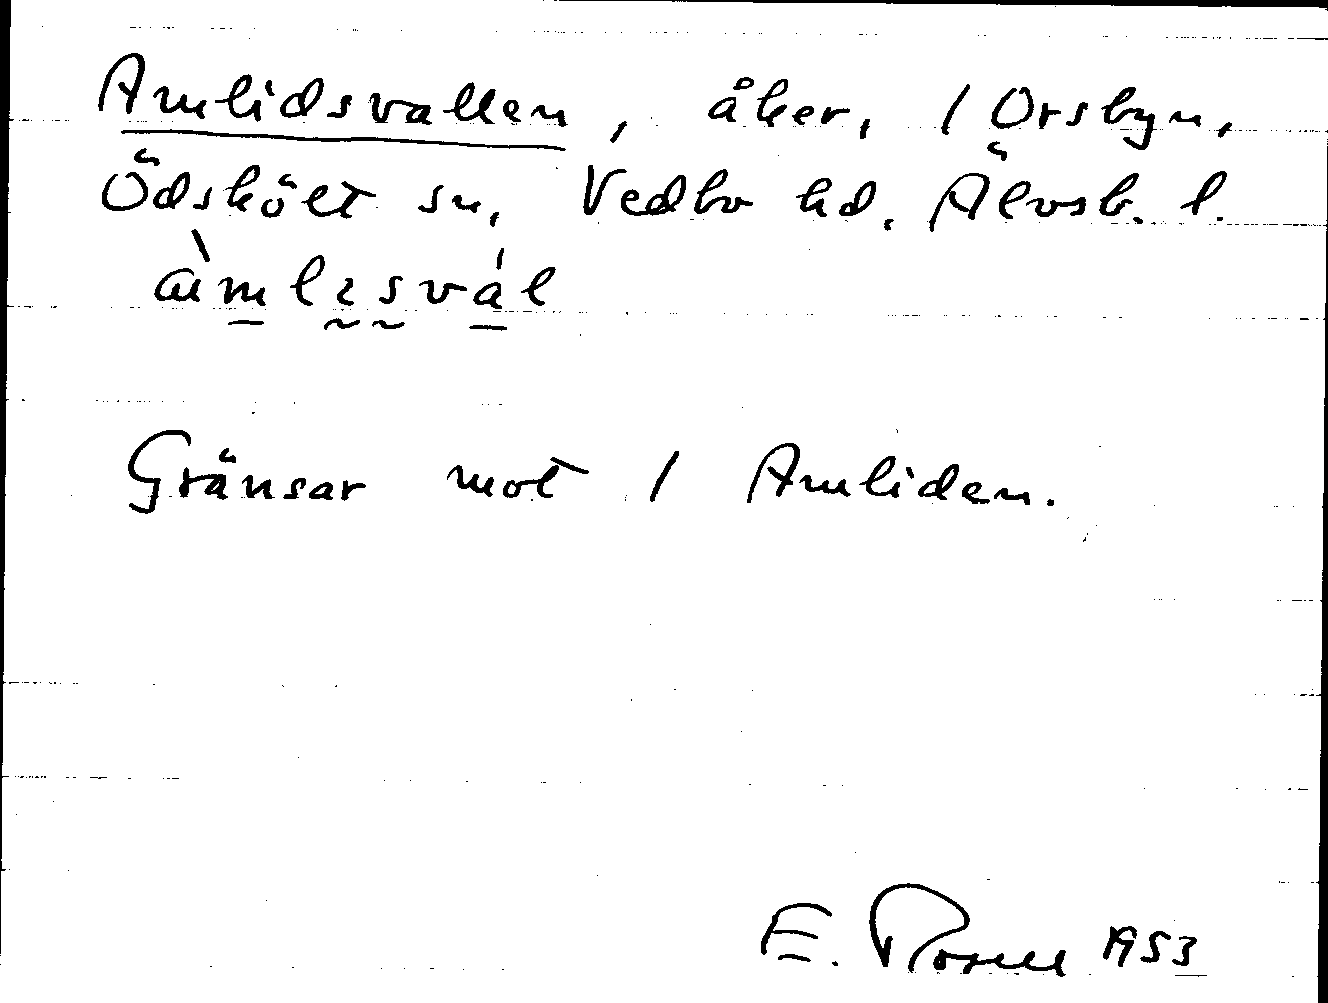 Amlidsvallen, åker, / Orsbyn,
Ödskölt sn, Vedbo hd. Älvsb. l.
Gränsar mot / Amliden.
E. Rosell 1953